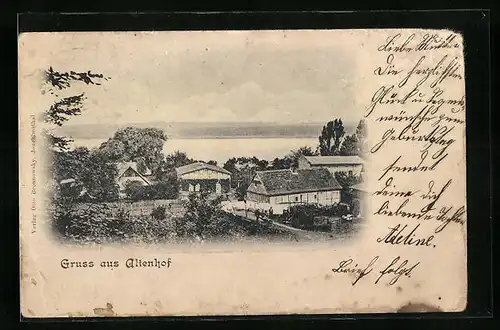 Liebe Mutter
Die herzlichsten
Glück u. Segens
wünsche zum
Geburtstag
sendet
deine dich
liebende Tochter
Adeline.
Brief folgt.
Gruss aus Altenhof
Verlag Otto Joachimsthal